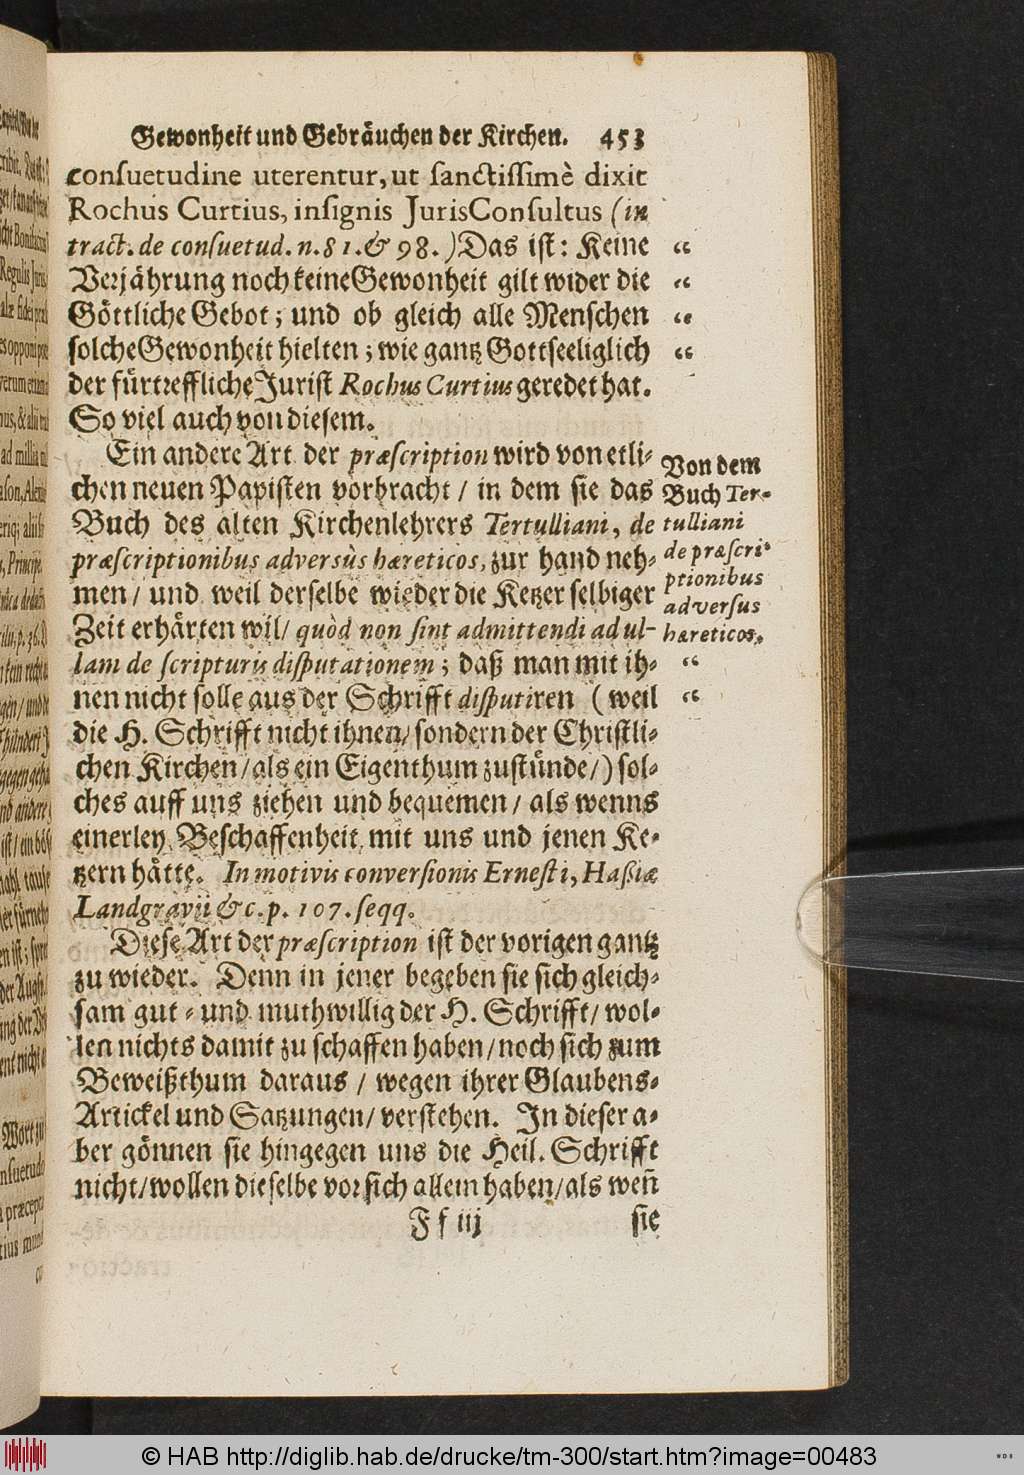 Gewonheit und Gebräuchen der Kirchen. 453
consuetudine uterentur, ut sanctissimè dixit
Rochus Curtius, insignis JurisConsultus (in
tract. de consuetud. n. 81. & 98.) Das ist: Keine
Verjährung noch keine Gewonheit gilt wider die
Göttliche Gebot; und ob gleich alle Menschen
solche Gewonheit hielten; wie gantz Gottseeliglich
der fürtreffliche Jurist Rochus Curtius geredet hat.
So viel auch von diesem.
Ein andere Art der præscription wird von etli-
chen neuen Papisten vorbracht / in dem sie das
Buch des alten Kirchenlehrers Tertulliani, de
præscriptionibus adversùs hæreticos, zur hand neh-
men / und weil derselbe wieder die Ketzer selbiger
Zeit erhärten wil / quòd non sint admittendi ad ul-
lam de scripturis disputationem; daß man mit ih-
nen nicht solle aus der Schrifft disputiren (weil
die H. Schrifft nicht ihnen / sondern der Christli-
chen Kirchen / als ein Eigenthum zustünde /) sol-
ches auff uns ziehen und bequemen / als wenns
einerley Beschaffenheit mit uns und jenen Ke-
tzern hätte. In motivis conversionis Ernesti, Hassiæ
Landgravii &c. p. 107. seqq.
Diese Art der præscription ist der vorigen gantz
zu wieder. Denn in jener begeben sie sich gleich-
sam gut- und muthwillig der H. Schrifft / wol-
len nichts damit zu schaffen haben / noch sich zum
Beweißthum daraus / wegen ihrer Glaubens-
Artickel und Satzungen / verstehen. In dieser a-
ber gönnen sie hingegen uns die Heil. Schrifft
nicht / wollen dieselbe vor sich allein haben / als weñ
F f iij sie
Von dem
Buch Ter-
tulliani
de præscri-
ptionibus
adversus
hæreticos.
© HAB http://diglib.hab.de/drucke/tm-300/start.htm?image=00483